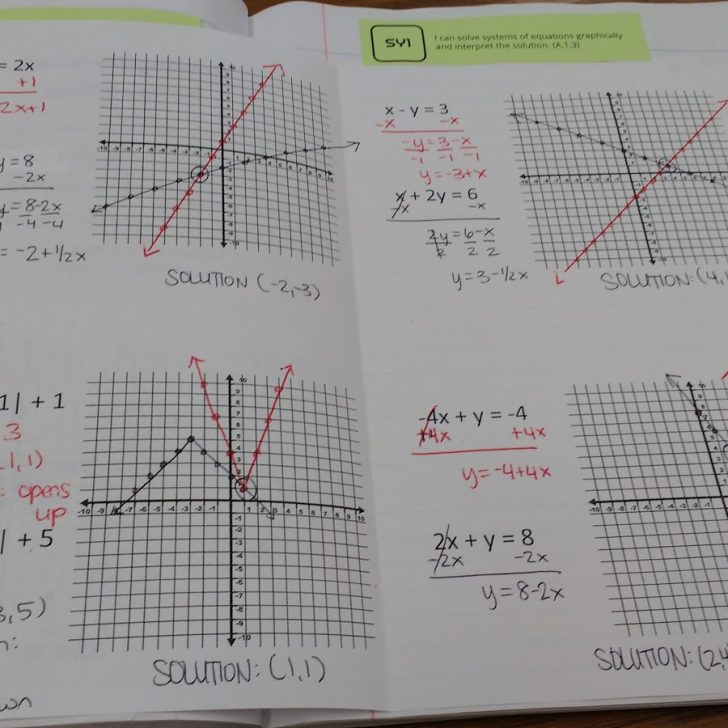 = 2x
+1
2x+1
y = 8
-2x
y = 8-2x
-4 -4
= -2 + 1/2x
SOLUTION (-2,-3)
1| + 1
3
(1,1)
= opens
up
| + 5
3,5)
n:
SOLUTION: (1,1)
SY1
I can solve systems of equations graphically
and interpret the solution. (A.1,3)
x - y = 3
-x -x
-y = 3 - x
-1 -1 -1
y = -3 + x
x + 2y = 6
-x -x
2y = 6 - x
2 2 2
y = 3 - 1/2x
SOLUTION: (4,
-4x + y = -4
+4x +4x
y = -4 + 4x
2x + y = 8
-2x -2x
y = 8 - 2x
SOLUTION: (2,4